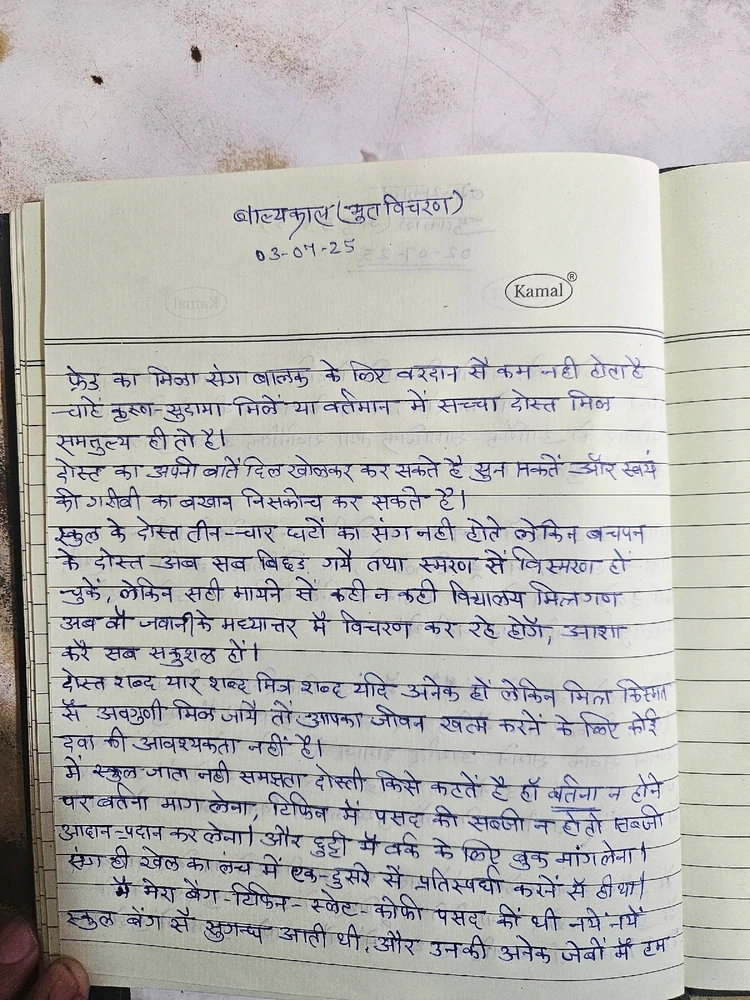 बाल्यकाल (भुत विचरण)
03-07-25
Kamal®
फ्रेंड का मिला संग बालक के लिए वरदान सें कम नही होता है
चाहें कृष्ण-सुदामा मिलें या वर्तमान में सच्चा दोस्त मिल
समतुल्य ही तो है।
दोस्त का अपनी बातें दिल खोलकर कर सकते है सुन सकतें और स्वयं
की गरीबी का बखान निसकोन्च कर सकते है।
स्कुल के दोस्त तीन-चार घटों का संग नही होते लेकिन बचपन
के दोस्त अब सब बिछड गयें तथा स्मरण सें विस्मरण हों
चुकें, लेकिन सही मायने सें कही न कही विद्यालय मित्रगण
अब वों जवानी के मध्यात्तर में विचरण कर रहे होगें, आशा
करें सब सकुशल हों।
दोस्त शब्द यार शब्द मित्र शब्द यदि अनेक हों लेकिन मित्र किस्मत
सें अवगुणी मिल जायें तों आपका जीवन खत्म करनें के लिए कोई
दवा की आवश्यकता नहीं है।
में स्कुल जाता नही समझता दोस्ती किसे कहतें है हॉ बर्तना न होने
पर बर्तना माग लेना, टिफिन में पसद की सब्जी न हो तो सब्जी
आदान-प्रदान कर लेना। और छुट्टी में वर्क के लिए बुक मांग लेना।
संग ही खेल का लंच में एक-दुसरे सें प्रतिस्पर्धा करनें सें ही था।
में मेरा बैग-टिफिन-स्लेट-कोफी पसद कीं थी नयें नयें
स्कुल बेंग सें सुगन्ध आती थी, और उनकी अनेक जेबों में हम